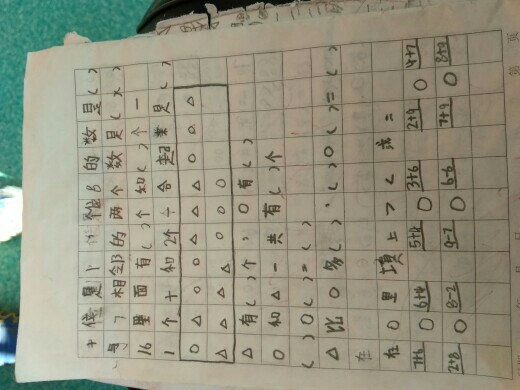 十位是1,个位8的数是( )
与7相邻的两个数是( )
16里面有( )个和( )个一
1个十和2个十合起来是( )
○△○○△△○○△
△△△○○
△有( )个,○有( )
○和△一共有( )个
( )○( )=( )
△比○多( ),( )○( )=( )
在
在○里填上><或=
6+4 5+4 3+6 2+9 4+7
2+8 8-2 9-7 6-6 7+9 8+9